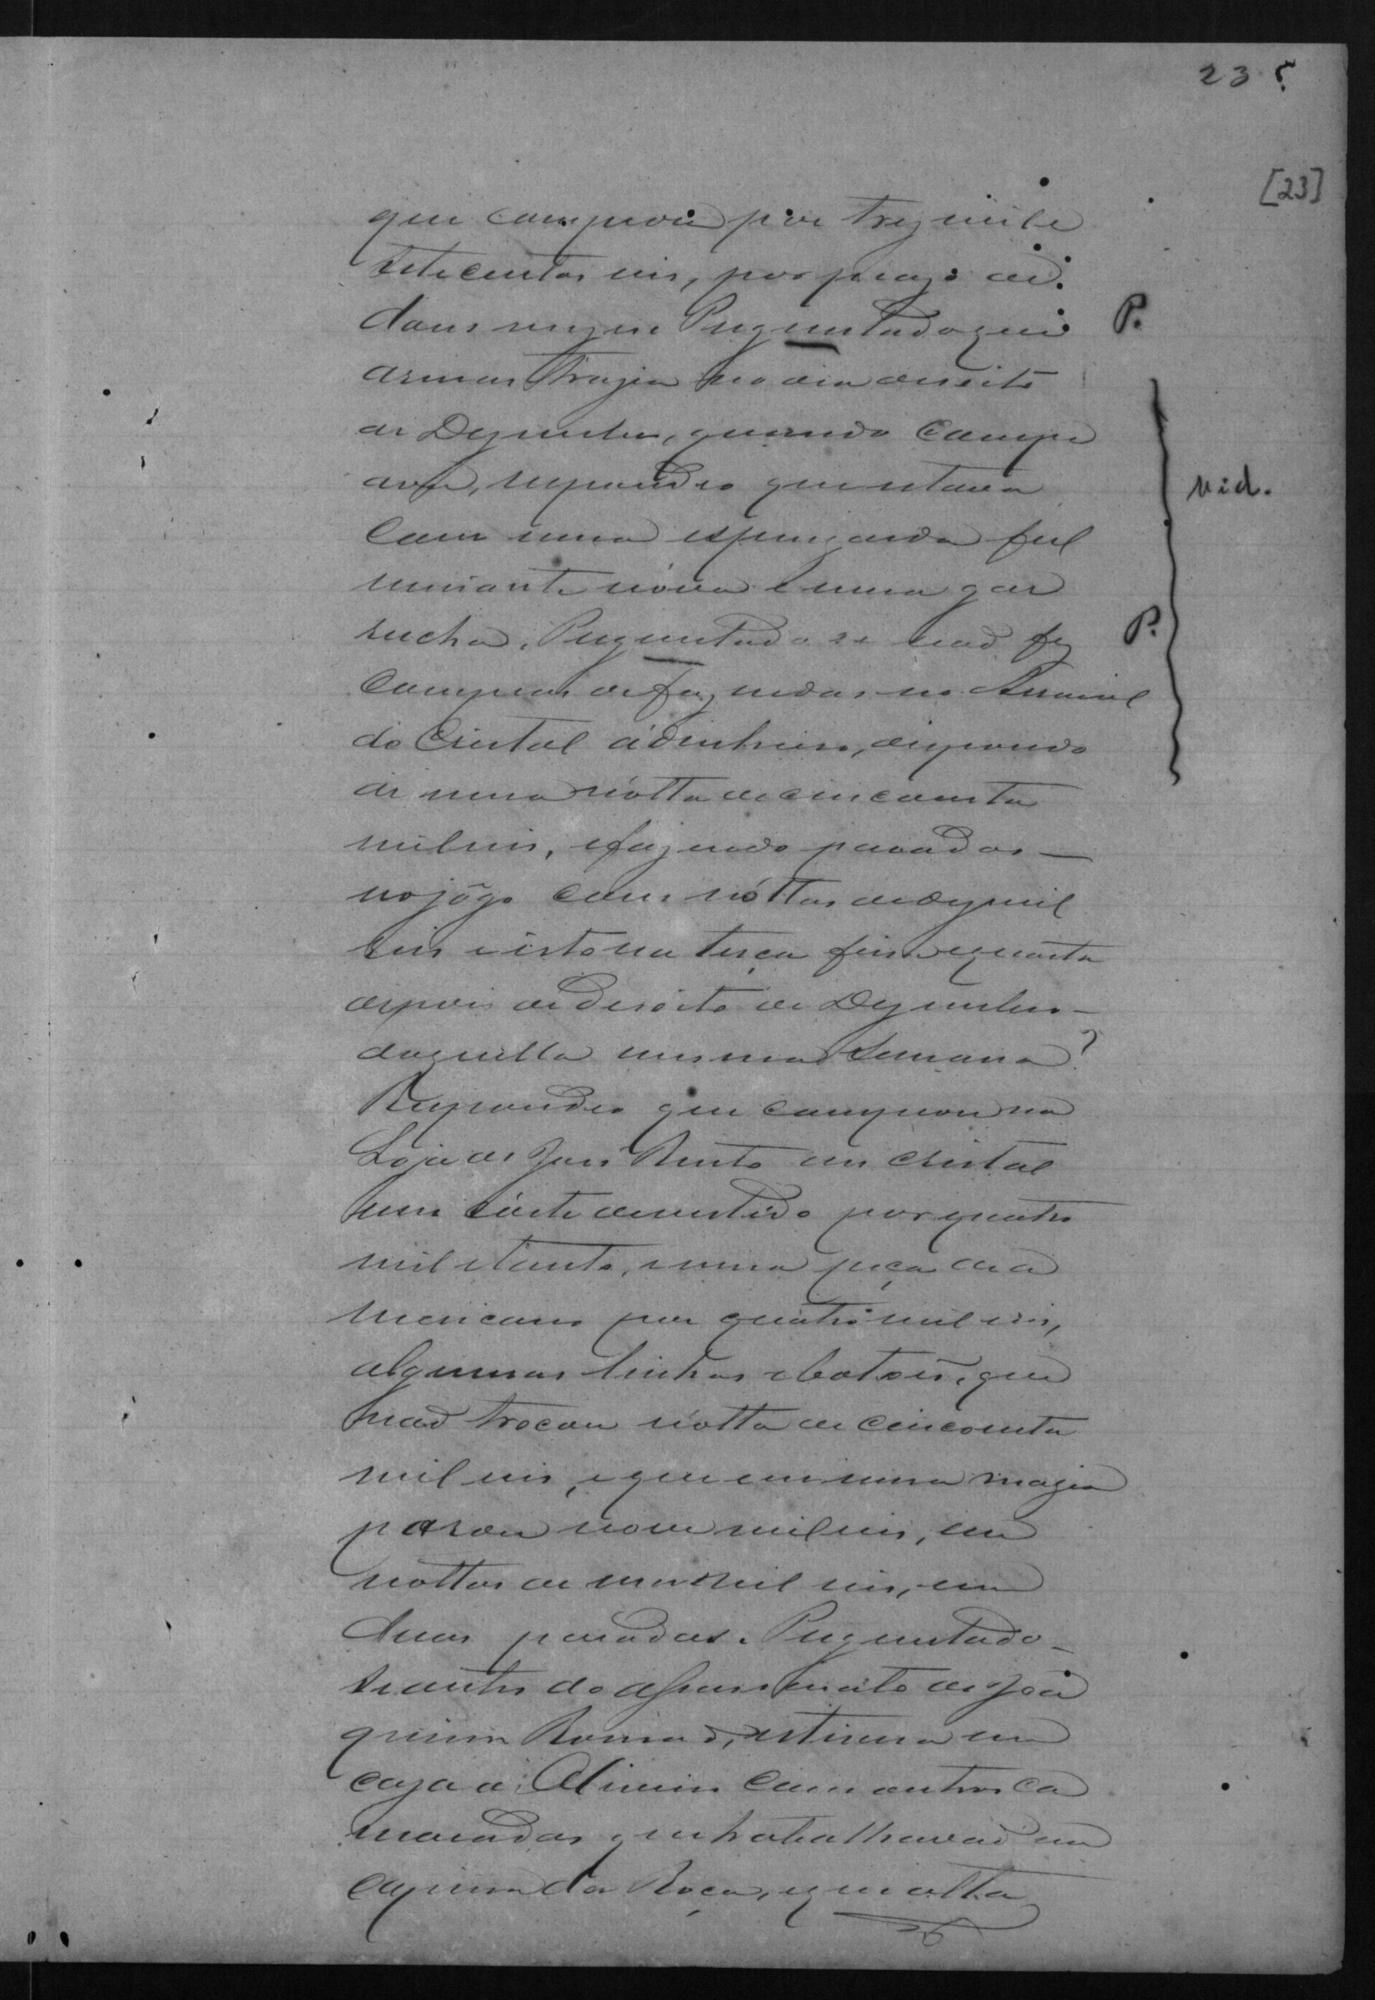 23
[23]
que comprou por trez mil e
sete centos reis, por prazo de
dous mezes. Perguntado que
P.
armas trazia no dia desoito
de Dezembro, quando campe
ava, respondeo que estava
vid.
com uma espingarda ful
minante nova e uma gar
rucha. Perguntado se não fez
P.
compras de fazendas no Arraial
do Cristal á dinheiro, dispondo
de uma nótta de cincoenta
mil reis, e fazendo paradas
no jôgo com nóttas de dez mil
reis e isto na terça feira e quarta
depois de desoito de Dezembro
daquella mesma semana?
Respondeo que comprou na
Loja de José Bento no Cristal
um córte de vestido por quatro
mil e tanto, e uma peça de a
mericano por quatro mil reis,
algumas linhas e botões, que
não trocou nótta de cincoenta
mil reis, e que em uma
parou nove mil reis, em
nottas de um mil reis, em
duas paradas. Perguntado
se antes do assassinato de Joa
quim, estivera em
casa de com outros ca
maradas que trabalhavão na
capina da Roça, e que volta